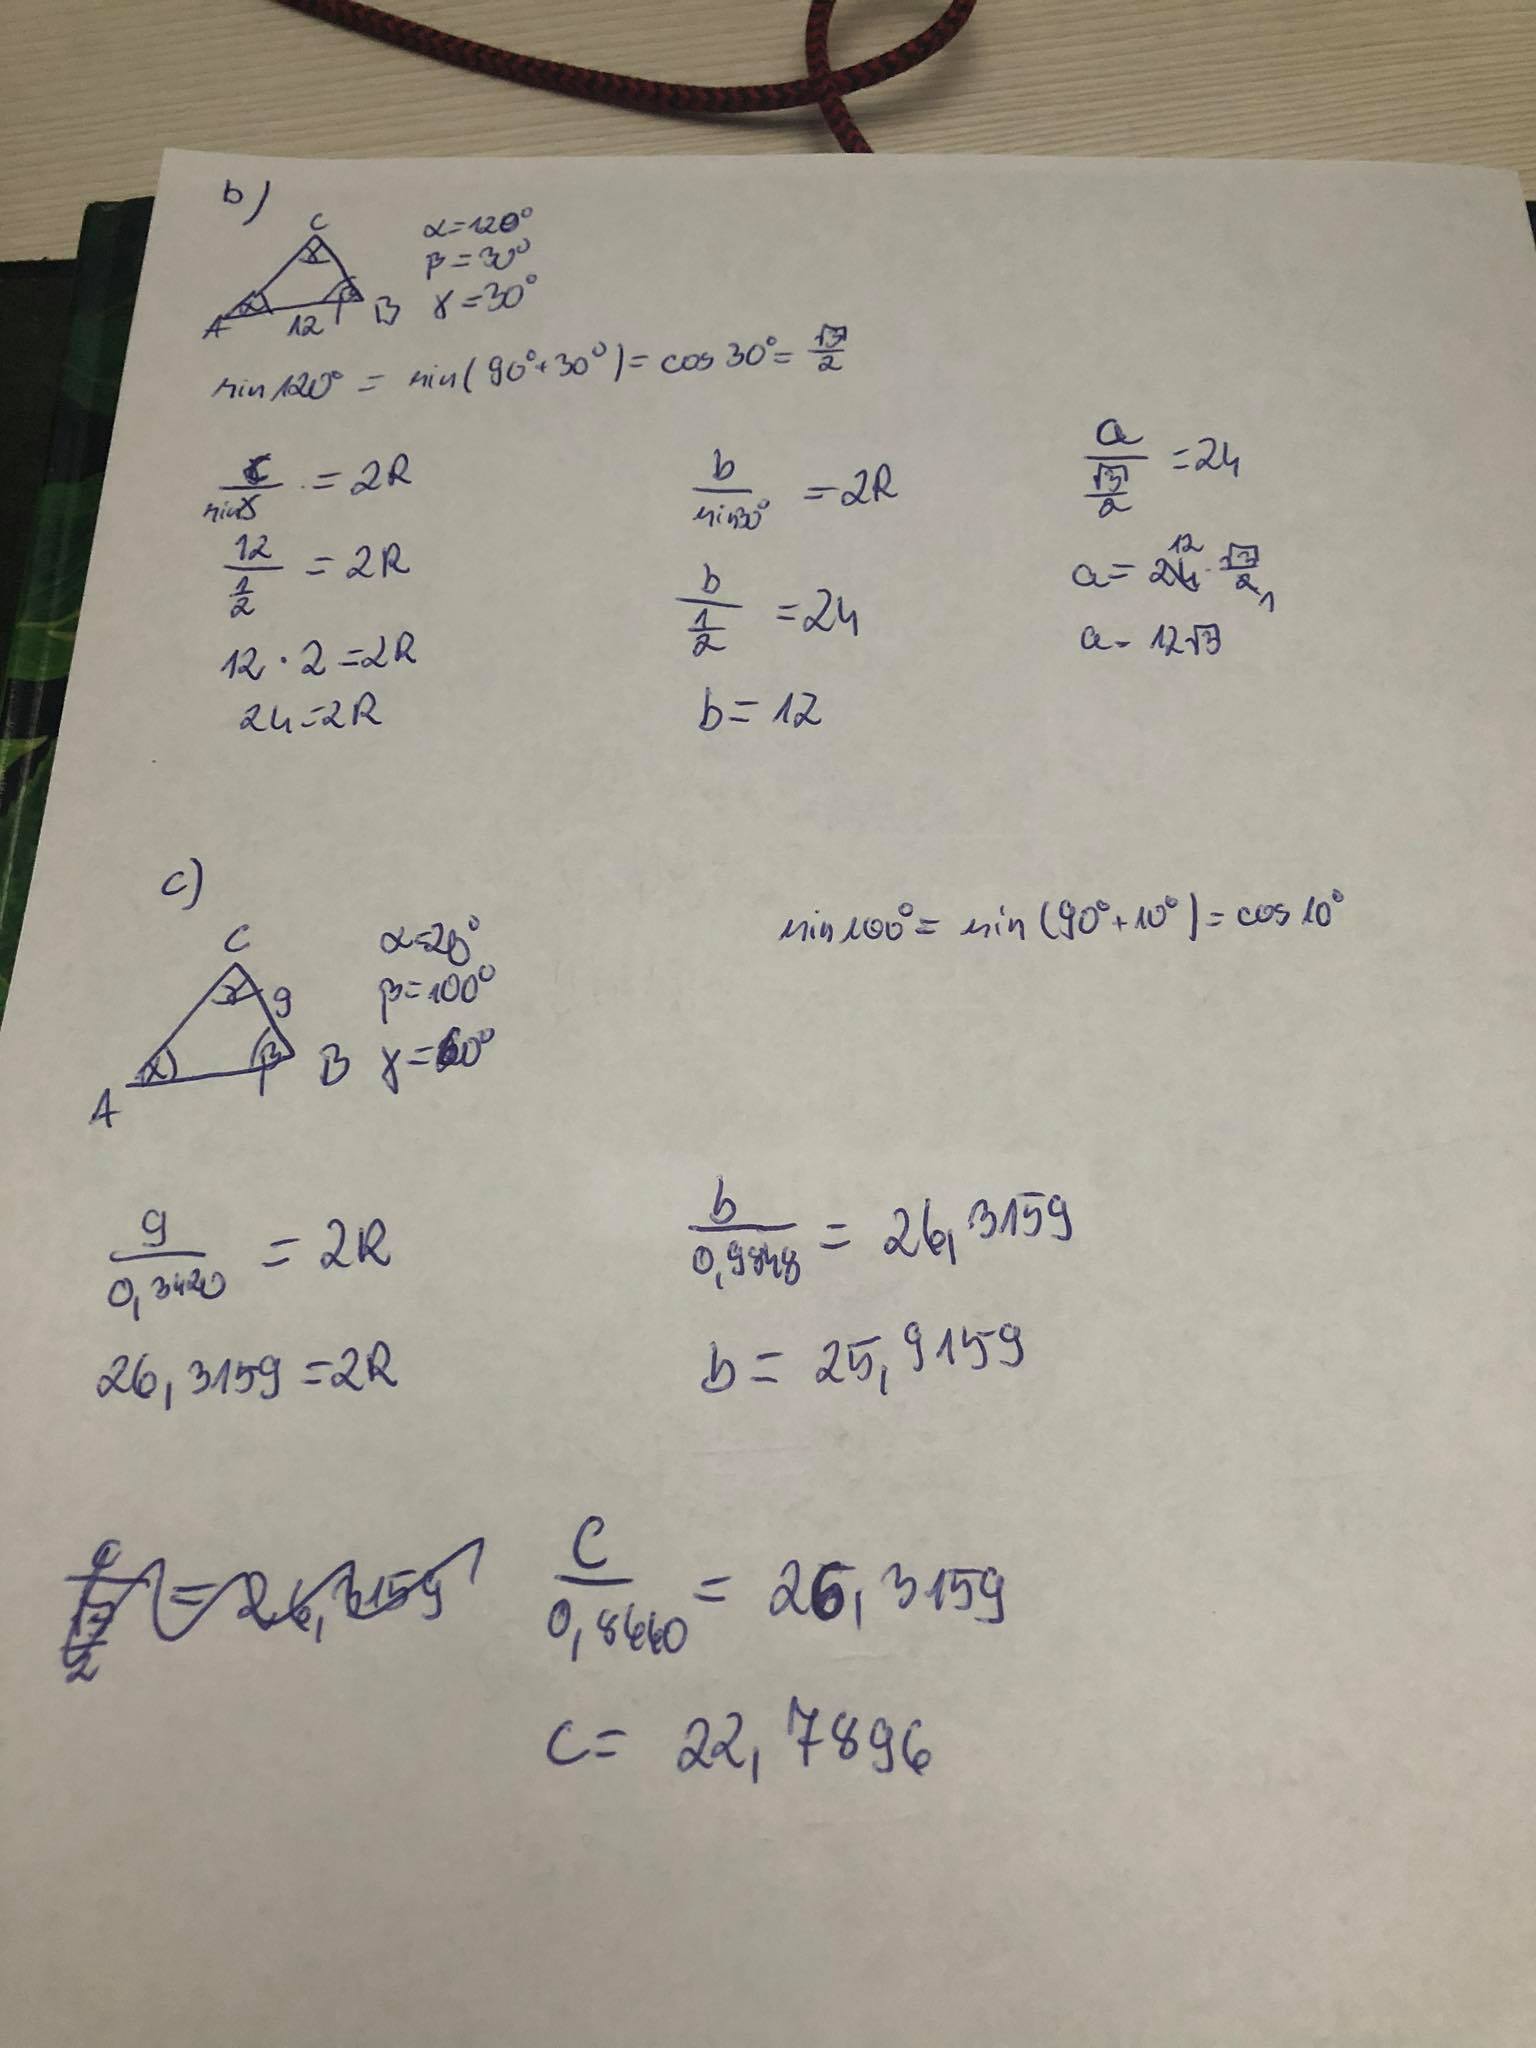 b)
C
α=120°
β=30°
γ=30°
A α 12 β B
γ
sin120° = sin(90°+30°) = cos30° = √3/2
c/sinγ = 2R
12/(1/2) = 2R
12 · 2 = 2R
24 = 2R
b/sin30° = 2R
b/(1/2) = 24
b = 12
a/(√3/2) = 24
a = 24 12 · √3/2 1
a = 12√3
c)
C
γ 9
A α β B
α=20°
β=100°
γ=60°
sin100° = sin(90°+10°) = cos10°
9/0,3420 = 2R
26,3159 = 2R
b/0,9848 = 26,3159
b = 25,9159
c/(√3/2) = 26,3159
c/0,8660 = 26,3159
c = 22,7896